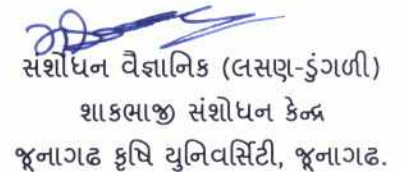 સંશોધન વૈજ્ઞાનિક (લસણ-ડુંગળી)
શાકભાજી સંશોધન કેન્દ્ર
જૂનાગઢ કૃષિ યુનિવર્સિટી, જૂનાગઢ.